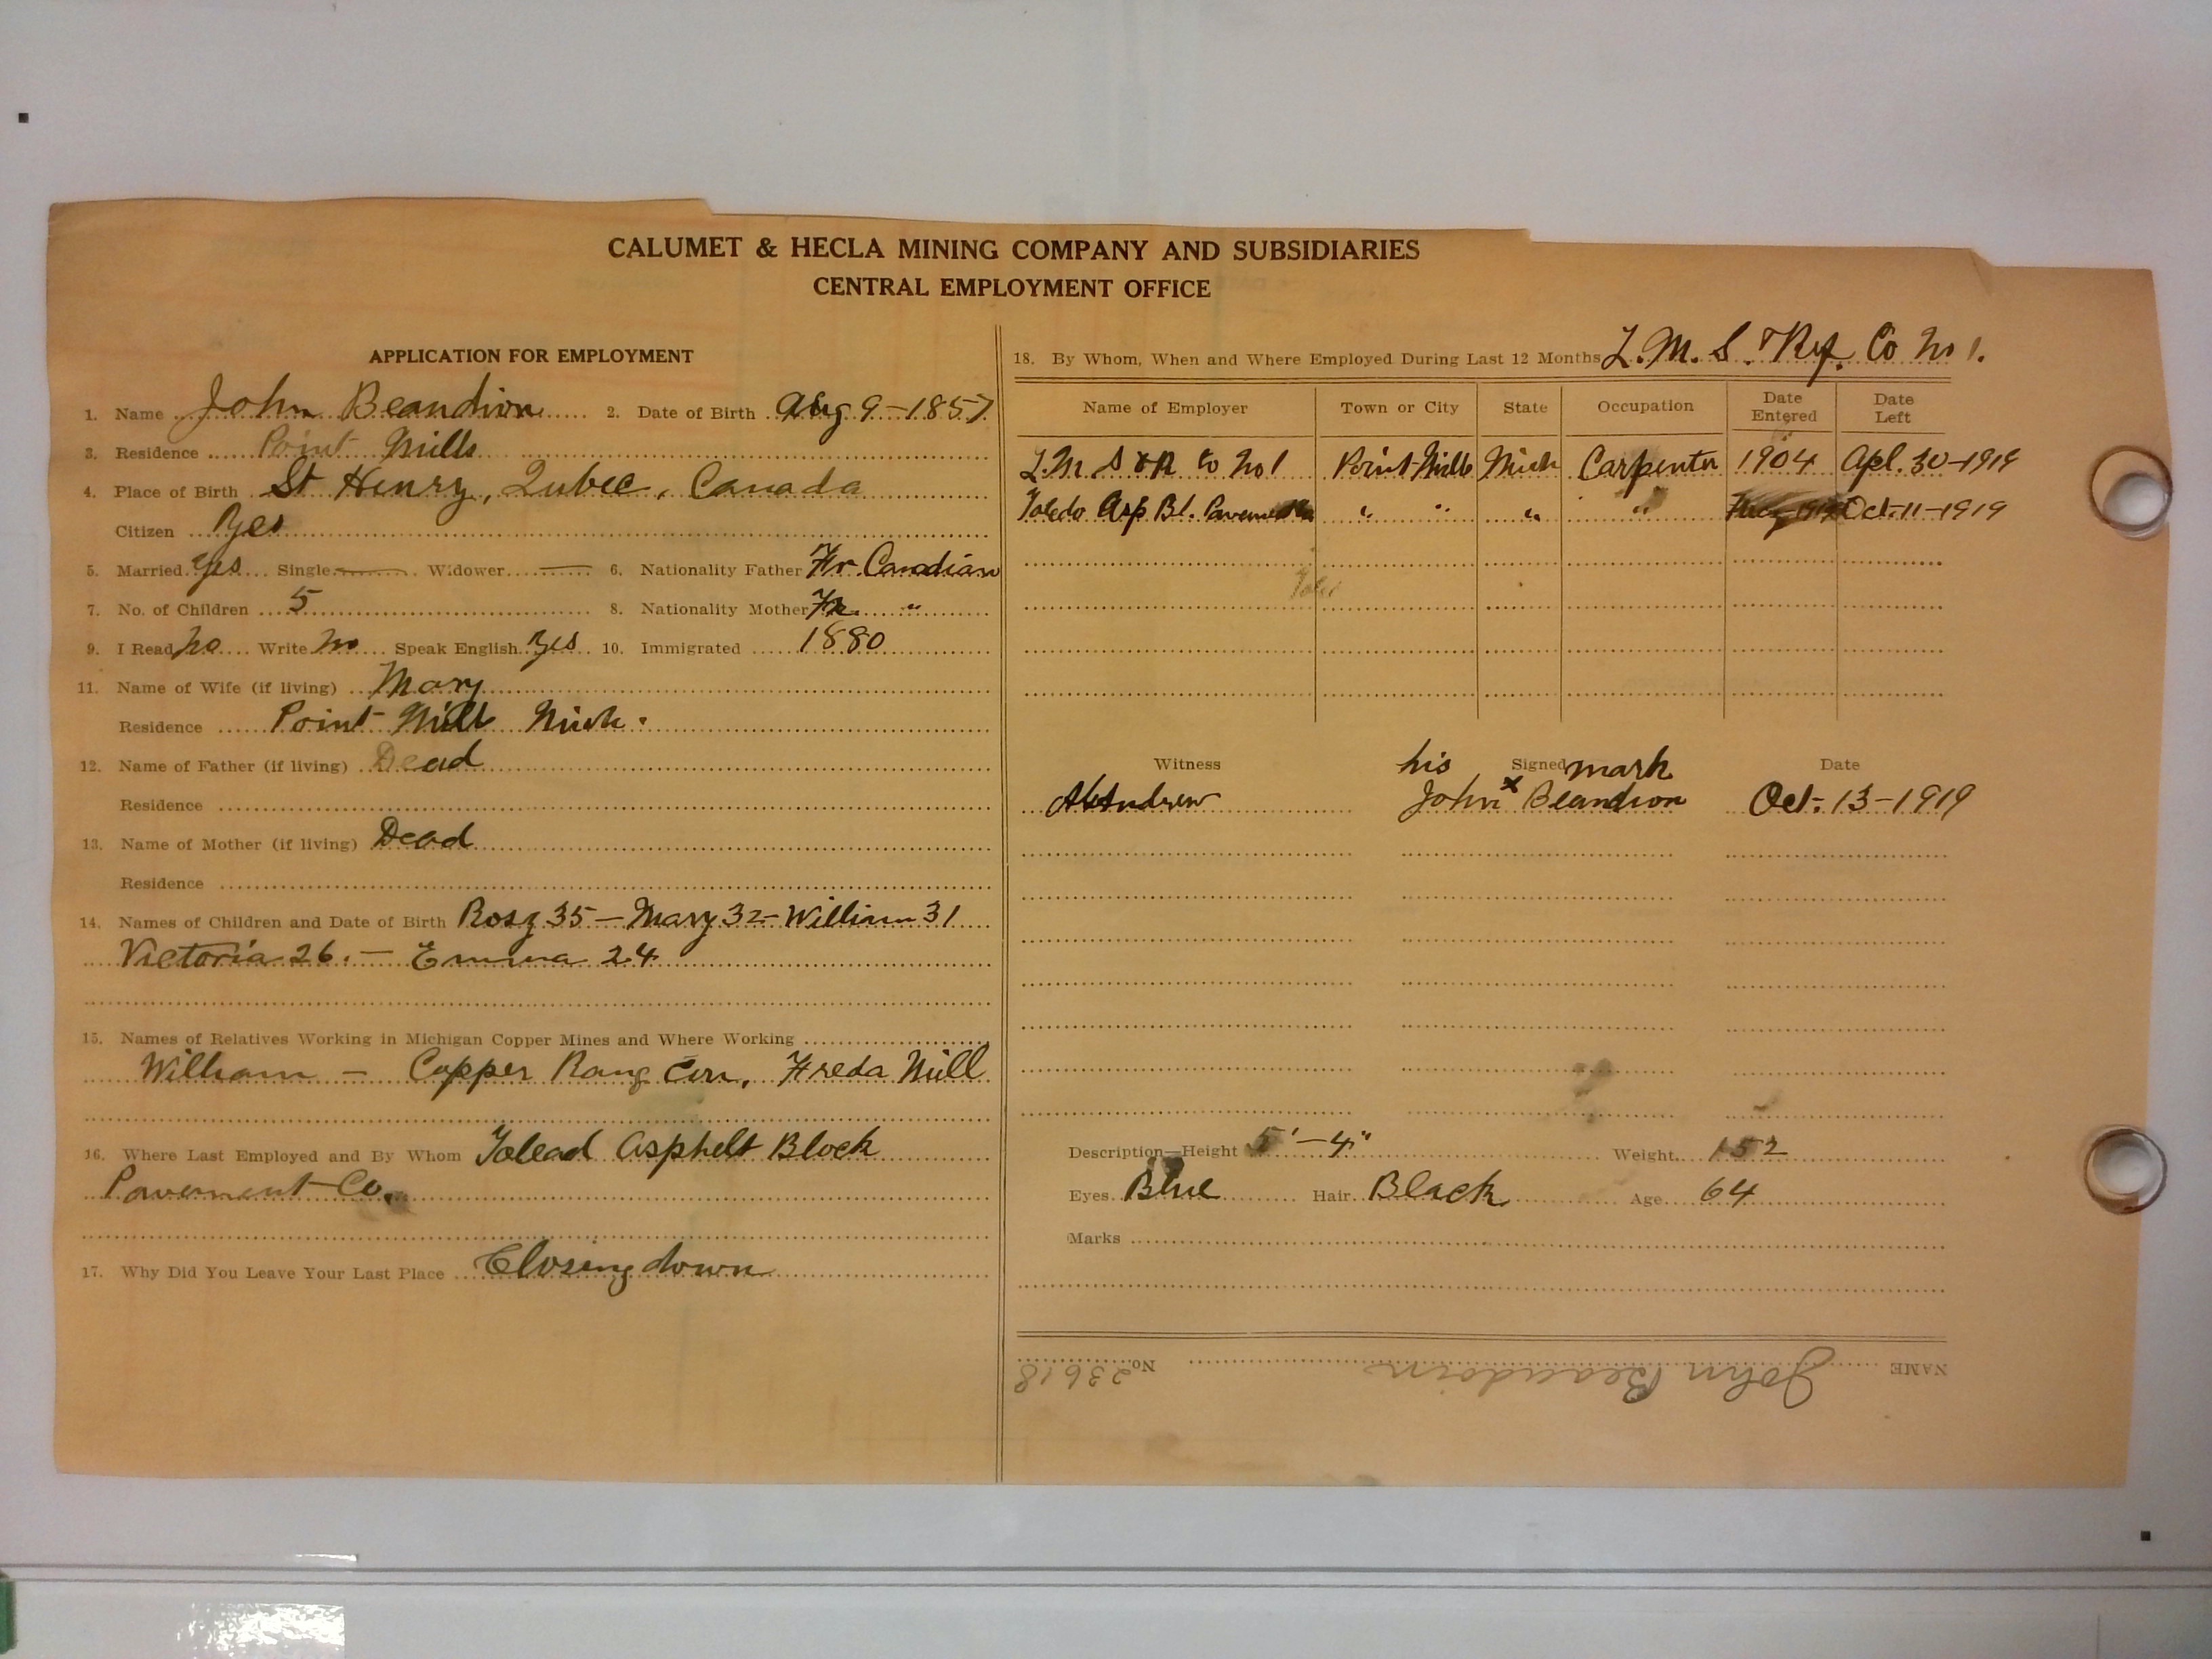 CALUMET & HECLA MINING COMPANY AND SUBSIDIARIES
CENTRAL EMPLOYMENT OFFICE
APPLICATION FOR EMPLOYMENT
1. Name John Beandion 2. Date of Birth Aug 9-1857
3. Residence Point Mills
4. Place of Birth St Henry, Qubec, Canada
Citizen Yes
5. Married Yes Single — Widower — 6. Nationality Father Fr Canadian
7. No. of Children 5 8. Nationality Mother Fr "
9. I Read No Write No Speak English Yes 10. Immigrated 1880
11. Name of Wife (if living) Mary
Residence Point Mill Mich.
12. Name of Father (if living) Dead
Residence
13. Name of Mother (if living) Dead
Residence
14. Names of Children and Date of Birth Rosy 35 — Mary 32 — William 31
Victoria 26. — Emma 24
15. Names of Relatives Working in Michigan Copper Mines and Where Working
William — Copper Rang Con, Freda Mill
16. Where Last Employed and By Whom Tolead Asphelt Block
Pavement Co.
17. Why Did You Leave Your Last Place Closing down
18. By Whom, When and Where Employed During Last 12 Months L. M. S. & Ref. Co No 1.
Name of Employer Town or City State Occupation Date Entered Date Left
L. M S & R Co No 1 Point Mills Mich Carpenter 1904 Apl. 30-1919
Toledo Asp Bl. Pavement " " " " Oct-11-1919
Witness his Signed mark Date
John x Beandion Oct-13-1919
Description—Height 5'-4" Weight 152
Eyes Blue Hair Black Age 64
Marks
NAME John Beaudoin No. 23618